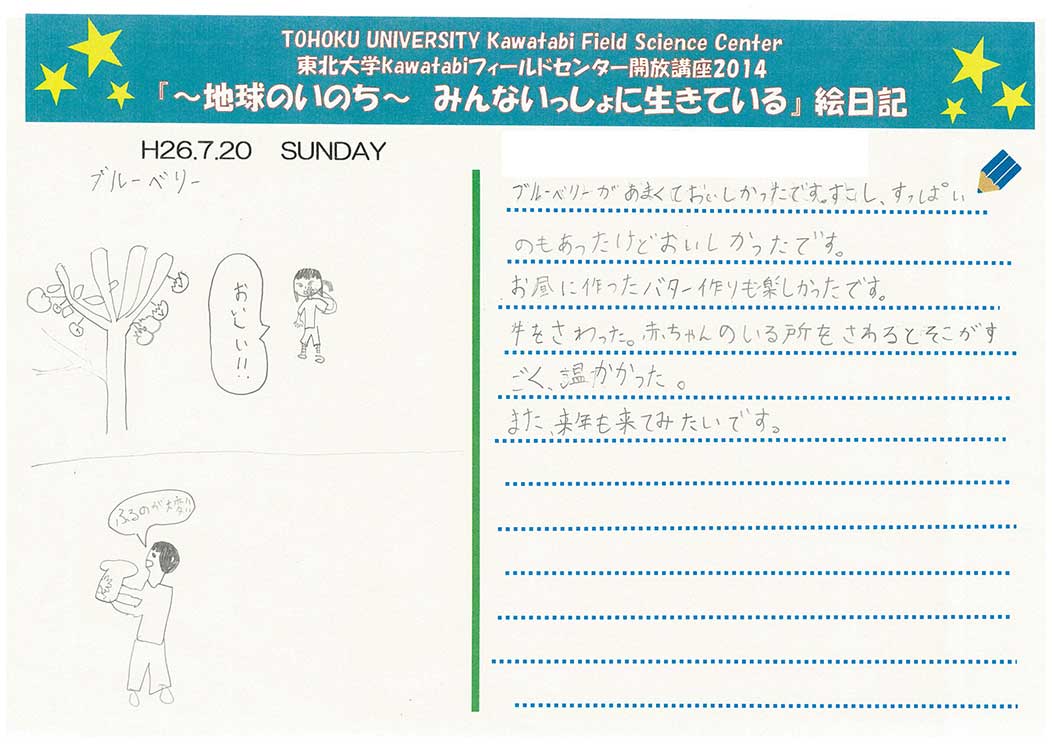 TOHOKU UNIVERSITY Kawatabi Field Science Center
東北大学Kawatabiフィールドセンター開放講座2014
『～地球のいのち～ みんないっしょに生きている』絵日記
H26.7.20 SUNDAY
ブルーベリー
おいしい!!
ふるのが大変
ブルーベリーがあまくておいしかったです。すこし、すっぱい
のもあったけどおいしかったです。
お昼に作ったバター作りも楽しかったです。
牛をさわった。赤ちゃんのいる所をさわるとそこがす
ごく、温かかった。
また、来年も来てみたいです。